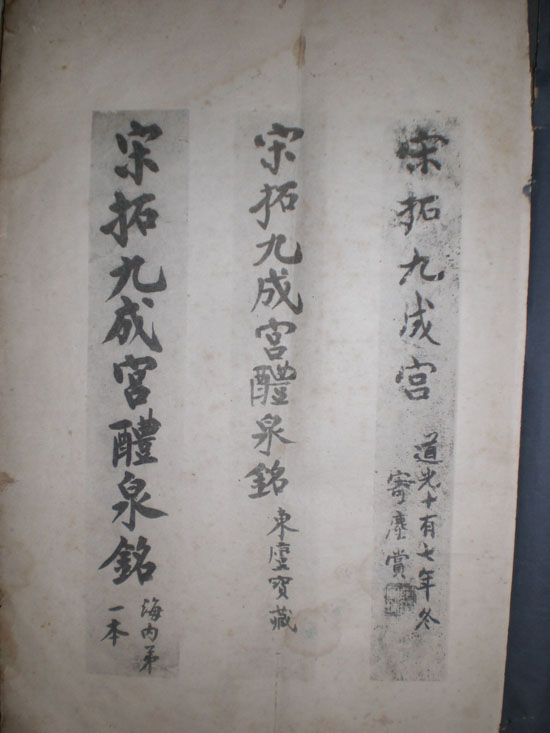 宋拓九成宮
道光十有七年冬
寄塵賞
宋拓九成宮醴泉銘
東廬寶藏
宋拓九成宮醴泉銘
海內第
一本